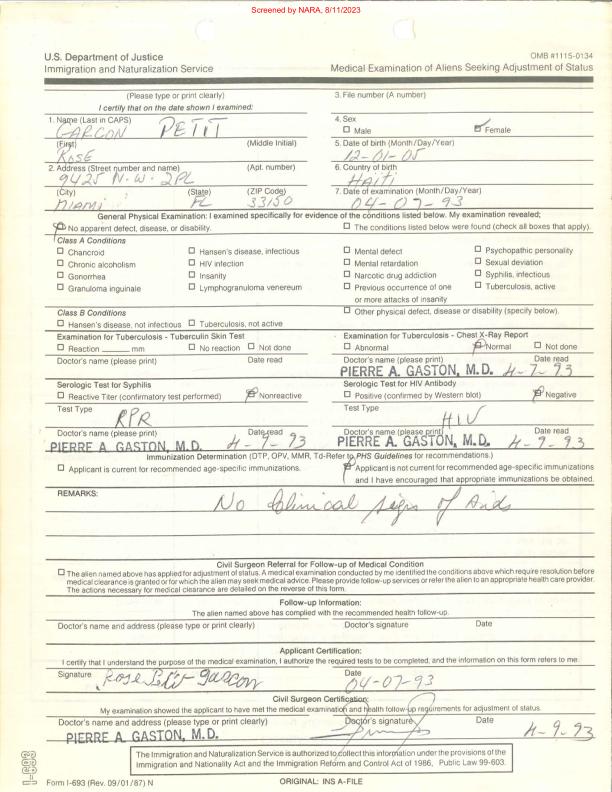 Screened by NARA, 8/11/2023
OMB #1115-0134
U.S. Department of Justice
Immigration and Naturalization Service
Medical Examination of Aliens Seeking Adjustment of Status
(Please type or print clearly)
I certify that on the date shown I examined:
3. File number (A number)
1. Name (Last in CAPS)
GARCON PETIT
4. Sex
Male
Female
(First)
(Middle Initial)
ROSE
5. Date of birth (Month/Day/Year)
12-01-05
2. Address (Street number and name)
(Apt. number)
9425 N.W. 2PL
6. Country of birth
HAITI
(City)
(State)
(ZIP Code)
MIAMI
FL
33150
7. Date of examination (Month/Day/Year)
04-07-93
General Physical Examination: I examined specifically for evidence of the conditions listed below. My examination revealed;
No apparent defect, disease, or disability.
The conditions listed below were found (check all boxes that apply).
Class A Conditions
Chancroid
Hansen's disease, infectious
Mental defect
Psychopathic personality
Chronic alcoholism
HIV infection
Mental retardation
Sexual deviation
Gonorrhea
Insanity
Narcotic drug addiction
Syphilis, infectious
Granuloma inguinale
Lymphogranuloma venereum
Previous occurrence of one
or more attacks of insanity
Tuberculosis, active
Class B Conditions
Other physical defect, disease or disability (specify below).
Hansen's disease, not infectious
Tuberculosis, not active
Examination for Tuberculosis - Tuberculin Skin Test
Reaction ______ mm
No reaction
Not done
Doctor's name (please print)
Date read
Examination for Tuberculosis - Chest X-Ray Report
Abnormal
Normal
Not done
Doctor's name (please print)
Date read
PIERRE A. GASTON, M.D. 4-7-93
Serologic Test for Syphilis
Reactive Titer (confirmatory test performed)
Nonreactive
Test Type
RPR
Doctor's name (please print)
Date read
PIERRE A. GASTON, M.D. 4-9-93
Serologic Test for HIV Antibody
Positive (confirmed by Western blot)
Negative
Test Type
HIV
Doctor's name (please print)
Date read
PIERRE A. GASTON, M.D. 4-9-93
Immunization Determination (DTP, OPV, MMR, Td-Refer to PHS Guidelines for recommendations.)
Applicant is current for recommended age-specific immunizations.
Applicant is not current for recommended age-specific immunizations
and I have encouraged that appropriate immunizations be obtained.
REMARKS:
No Clinical signs of Aids
Civil Surgeon Referral for Follow-up of Medical Condition
The alien named above has applied for adjustment of status. A medical examination conducted by me identified the conditions above which require resolution before
medical clearance is granted or for which the alien may seek medical advice. Please provide follow-up services or refer the alien to an appropriate health care provider.
The actions necessary for medical clearance are detailed on the reverse of this form.
Follow-up Information:
The alien named above has complied with the recommended health follow-up.
Doctor's name and address (please type or print clearly)
Doctor's signature
Date
Applicant Certification:
I certify that I understand the purpose of the medical examination, I authorize the required tests to be completed, and the information on this form refers to me.
Signature
Date
Rose Petit garcon
04-07-93
Civil Surgeon Certification:
My examination showed the applicant to have met the medical examination and health follow-up requirements for adjustment of status.
Doctor's name and address (please type or print clearly)
Doctor's signature
Date
PIERRE A. GASTON, M.D.
4-9-93
The Immigration and Naturalization Service is authorized to collect this information under the provisions of the
Immigration and Nationality Act and the Immigration Reform and Control Act of 1986, Public Law 99-603.
Form I-693 (Rev. 09/01/87) N
ORIGINAL: INS A-FILE